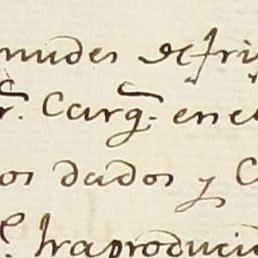 mudes de fri
r. Carg. en e
os dados y C
. traproduci